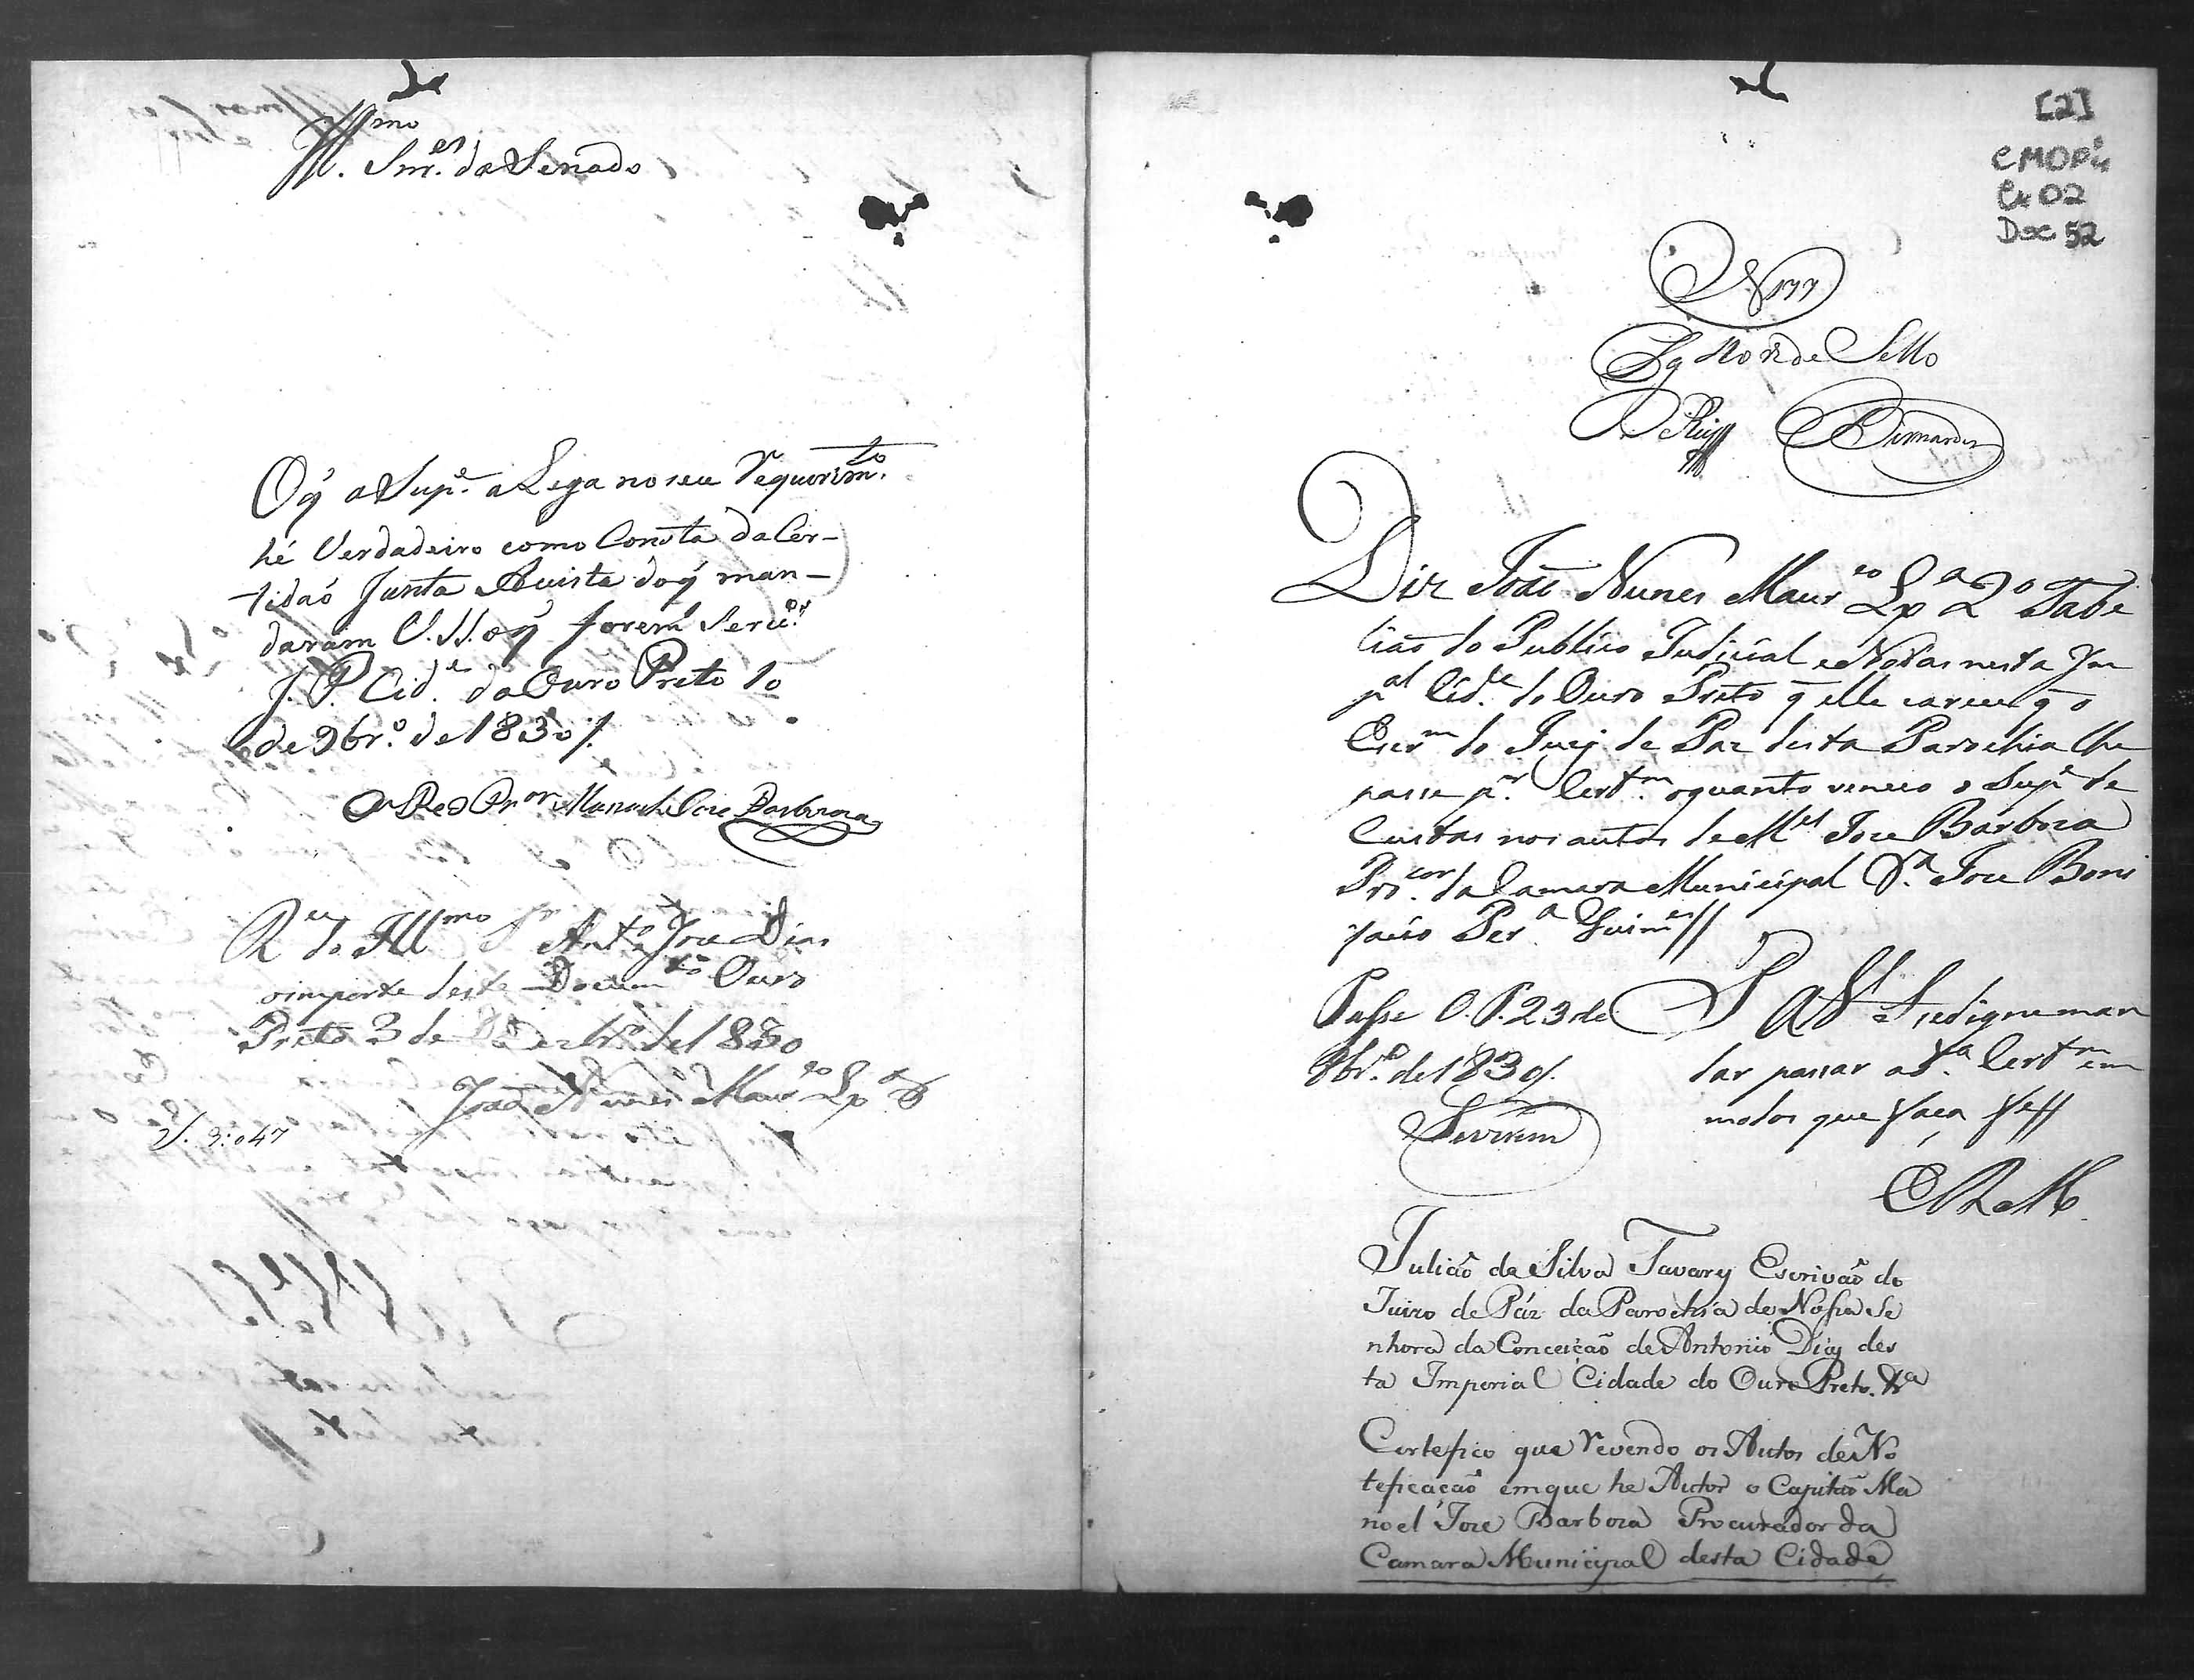 Ill.mo
Snr.es do Senado
O q̃ o Sup.e alega no seu requerim.to
hé Verdadeiro como Consta da Cer-
tidaõ Junta Avista do q̃ man-
daram V. S.S. o q̃ forem Serv.os
J. P. Cid.e do Ouro Preto 10
de 9br.o de 1830/.
O Proc.or Manoel Jose Barboza
R.ci do Ill.mo S.r Ant.o Joze Dias
oimporte deste Docum.to Ouro
Preto 3 de Dezbr.o de 1830
João Nunes Maur.co Lx.a
3:047
[2]
CMOP
Cx 02
Doc 52
N 177
Pg 40 rs de Sello
Bernardes
Diz Joaõ Nunes Maur.co Lx.a 2.o Tabe
liaõ do Publico Judicial e Notas nesta Im
p.al Cid.e do Ouro Preto q̃ elle carece q̃ o
Escr.m do Juiz de Paz desta Parochia lhe
passe p.r Cert.m oquanto venceo o Sup.e de
Custas nos autos de M.el Joze Barboza
Pro.cor da Camara Municipal C.a Joze Boni
facio Per.a Guim.es//
Passe O. P. 23 de
8br.o de 1830/.
P. a V S.a Se digne man
dar passar a d.a Cert.m em
modos que faça fe//
E R M.
Juliaõ da Silva Tavares Escrivaõ do
Juizo de Páz da Parochia de Nossa Se
nhora da Conceiçaõ de Antonio Dias des
ta Imperial Cidade do Ouro Preto. &.a
Certefico que revendo os Autos de No
teficaçaõ emque he Autor o Capitaõ Ma
noel Joze Barboza Procurador da
Camara Municipal desta Cidade